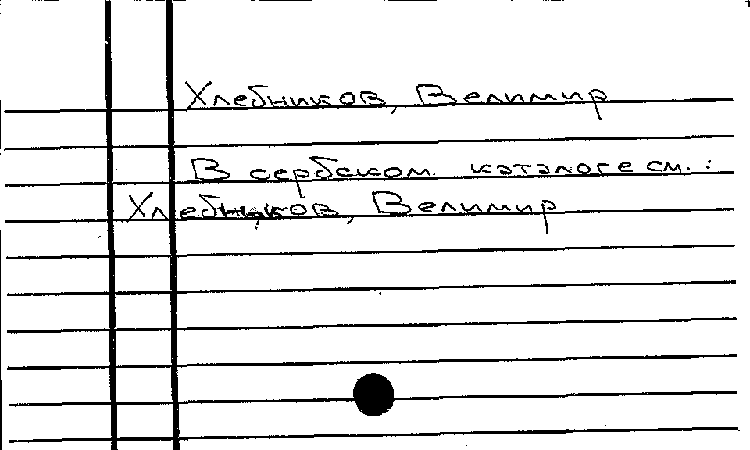 Хлебников, Велимир
В сербском каталоге см.:
Хлебников, Велимир